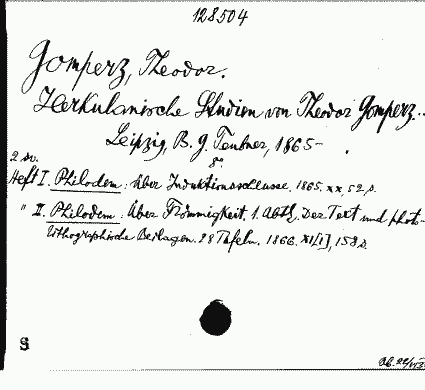 128504
Gomperz, Theodor.
Herkulanische Studien von Theodor Gomperz...
Leipzig, B. G. Teubner, 1865-
8°
2 sv.
Heft I. Philodem: Über Induktionsschlüsse. 1865. XX, 52 s.
" II. Philodem: Über Frömmigkeit. 1. Abth. Der Text und photo-
lithographische Beilagen. 28 Tafeln. 1866. XI[I], 158 s.
S